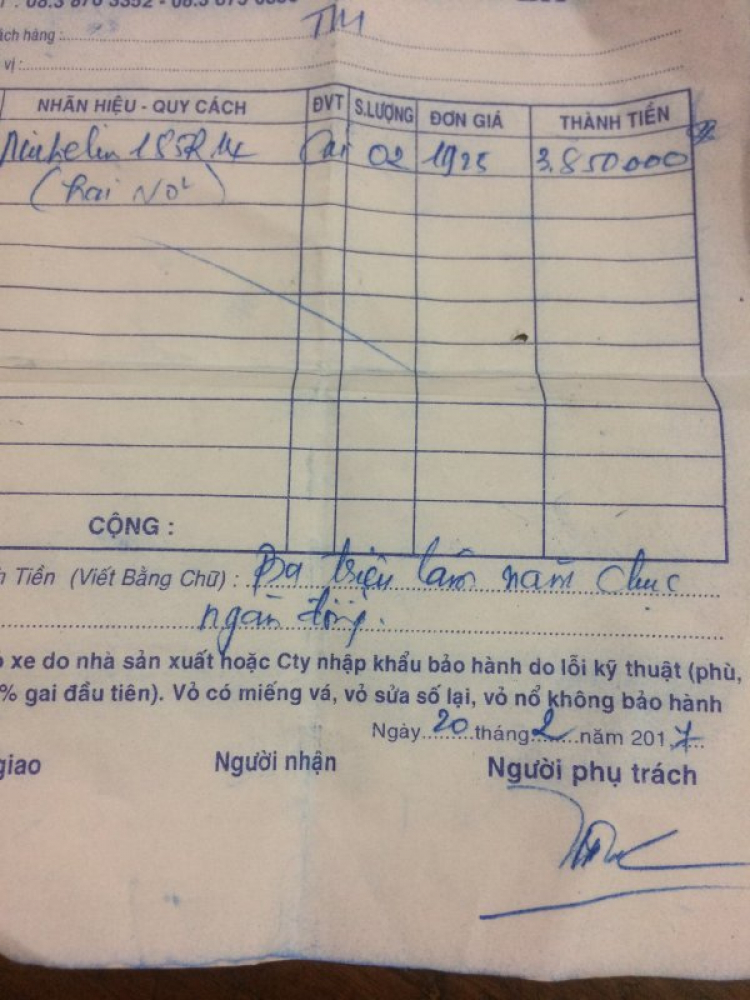 : 08.3 876 3352 - 08.3 875
ách hàng : TM
vị :
NHÃN HIỆU - QUY CÁCH ĐVT S.LƯỢNG ĐƠN GIÁ THÀNH TIỀN
Michelin 185R14 Cái 02 1925 3.850.000
(hai vỏ)
CỘNG :
h Tiền (Viết Bằng Chữ) : Ba triệu tám năm chục
ngàn đồng.
ỏ xe do nhà sản xuất hoặc Cty nhập khẩu bảo hành do lỗi kỹ thuật (phù,
% gai đầu tiên). Vỏ có miếng vá, vỏ sửa số lại, vỏ nổ không bảo hành
Ngày 20 tháng 2 năm 2017
giao Người nhận Người phụ trách